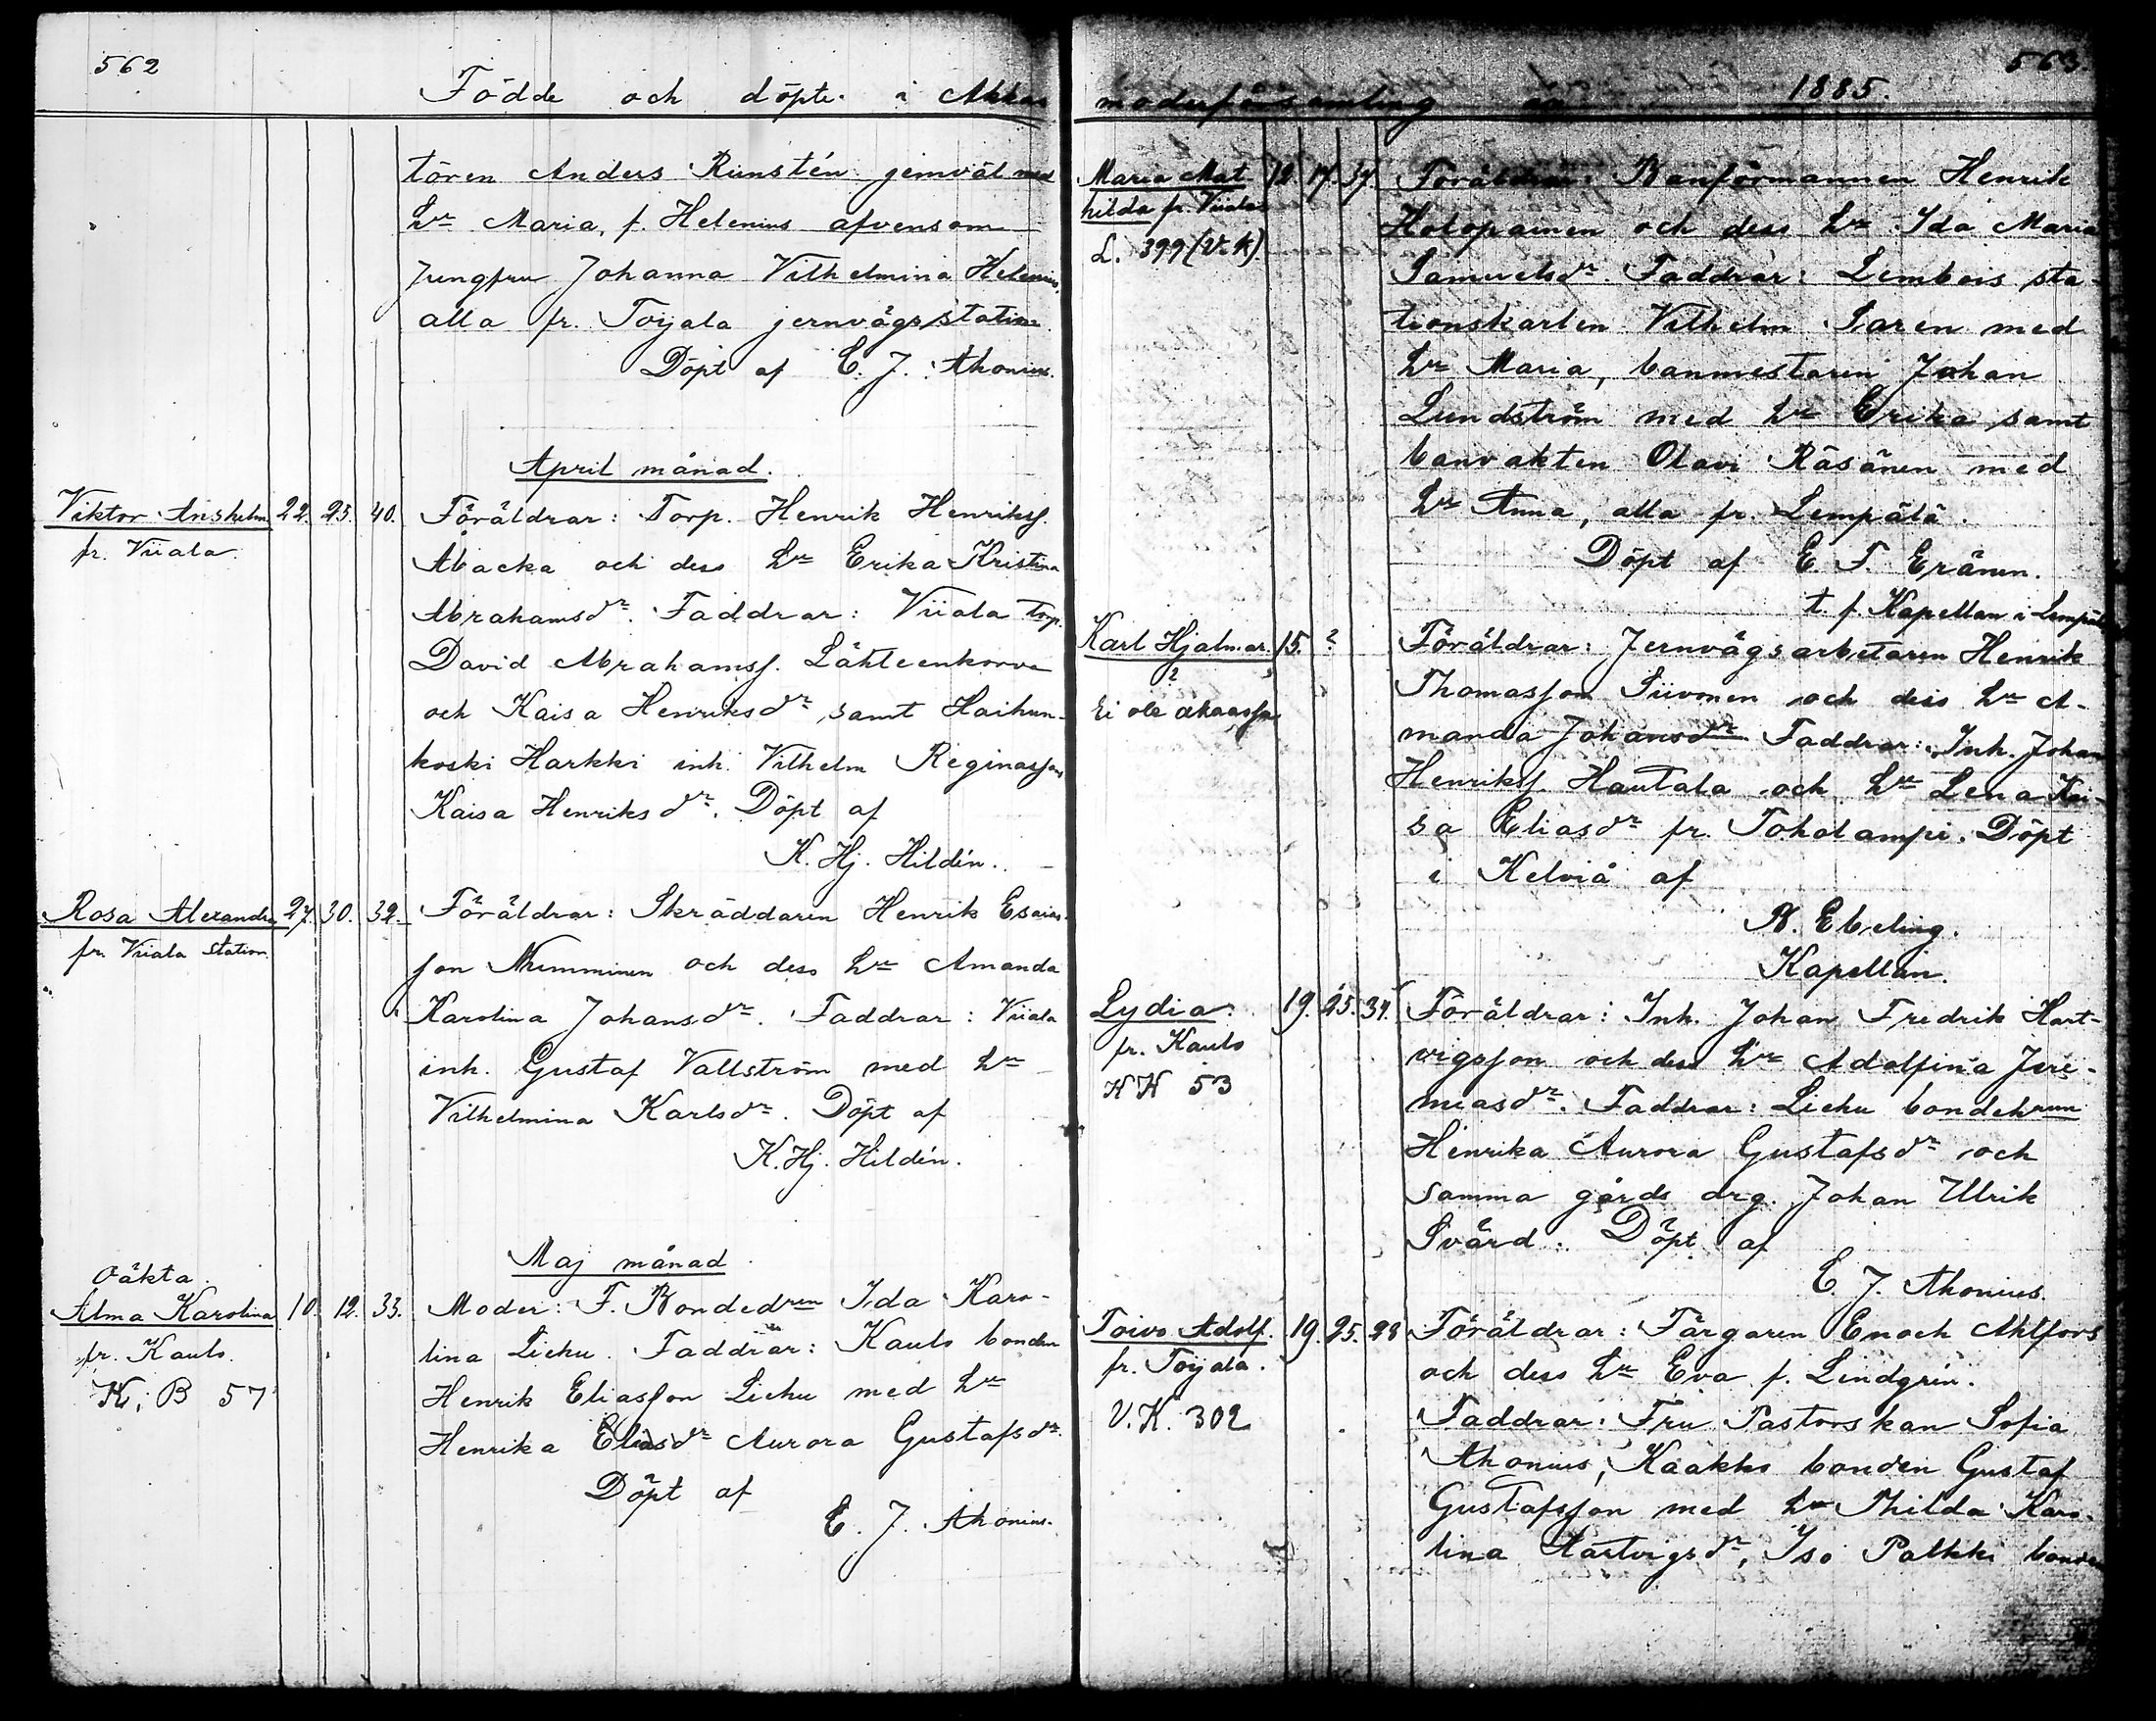 562
Födde och döpte i Akkas
tören Anders Runstén jemväl med
hu Maria, f. Helenius afvensom
Jungfru Johanna Vilhelmina Helenius,
alla fr. Toijala jernvägsstation.
Döpt af E. J. Ahonius.
April månad.
Viktor Anshelm 22. 25. 40. Föräldrar: Torp. Henrik Henrikss.
fr. Viiala. Åbacka och dess hu Erika Kristina
Abrahamsdr. Faddrar: Viiala torp.
David Abrahamss. Lähteenkorva
och Kaisa Henriksdr, samt Haihun-
koski Harkki inh. Vilhelm Reginasson
Kaisa Henriksdr. Döpt af
K. Hj. Hildén.
Rosa Alexandra 27. 30. 32. Föräldrar: Skräddaren Henrik Esaias-
fr. Viiala station. son Numminen och dess hu Amanda
Karolina Johansdr. Faddrar: Viiala
inh. Gustaf Vallström med hu
Vilhelmina Karlsdr. Döpt af
K. Hj. Hildén.
Maj månad
Oäkta.
Alma Karolina 10. 12. 33. Moder: F. Bondedren Ida Karo-
fr. Kaulo. lina Lieku. Faddrar: Kaulo bonden
K; B 57 Henrik Eliasson Lieku med hu
Henrika Eliasdr Aurora Gustafsdr.
Döpt af
E. J. Ahonius.
563.
moderförsamling år 1885.
Maria Mat- 12 17 37 Föräldrar: Banförmannen Henrik
hilda fr. Viiala Holopainen och dess hu Ida Maria
L. 399 (V.K) Samuelsdr. Faddrar: Lembois sta-
tionskarlen Vilhelm Saren med
hu Maria, banmestaren Johan
Lundström med hu Erika samt
banvakten Olavi Räsänen med
hu Anna, alla fr. Lempälä.
Döpt af E. F. Eränen.
t. f. Kapellan i Lempälä
Karl Hjalmar. 15. ? Föräldrar: Jernvägsarbetaren Henrik
? Thomasson Siivonen och dess hu A-
Ei ole Akaassa manda Johansdr. Faddrar: Inh. Johan
Henrikss. Hautala och hu Lena Kai-
sa Eliasdr fr. Toholampi. Döpt
i Kelviå af
R. Ebeling.
Kapellan.
Lydia. 19. 25. 34. Föräldrar: Inh. Johan Fredrik Hart-
fr. Kaulo vigsson och dess hu Adolfina Jere-
KK 53 miasdr. Faddrar: Lieku bondehrun
Henrika Aurora Gustafsdr och
samma gårds drg. Johan Ulrik
Svärd. Döpt af
E. J. Ahonius.
Toivo Adolf. 19. 25. 28 Föräldrar: Färgaren Enoch Ahlfors
fr. Toijala. och dess hu Eva f. Lindgrén.
V.K. 302 Faddrar: Fru Pastorskan Sofia
Ahonius, Kaakko bonden Gustaf
Gustafsson med hu Thilda Karo-
lina Hartvigsdr, Iso Palkki bonden